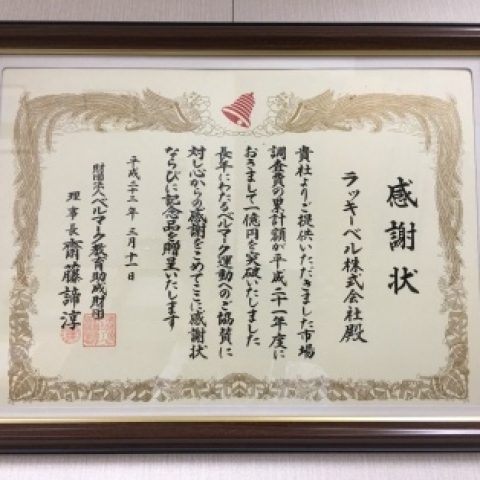 感謝状
ラッキーベル株式会社殿
貴社よりご提供いただきました市場
調査費の累計額が平成二十一年度に
おきまして一億円を突破いたしました
長年にわたるベルマーク運動へのご協賛に
対し心からの感謝をこめてここに感謝状
ならびに記念品を贈呈いたします
平成二十三年三月十一日
財団法人ベルマーク教育助成財団
理事長齋藤諦淳